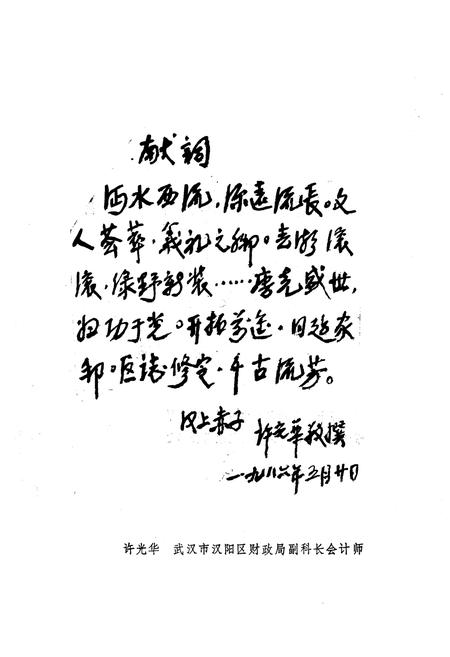 献词
沔水西流,源远流长。文
人荟萃,義礼之鄉。春潮滚
滚,绿野新装……唐尧盛世,
归功于党。开拓前途,日超家
邦。区誌修定,千古流芳。
汉上赤子 许光華敬撰
一九八六年五月廿日
许光华 武汉市汉阳区财政局副科长会计师